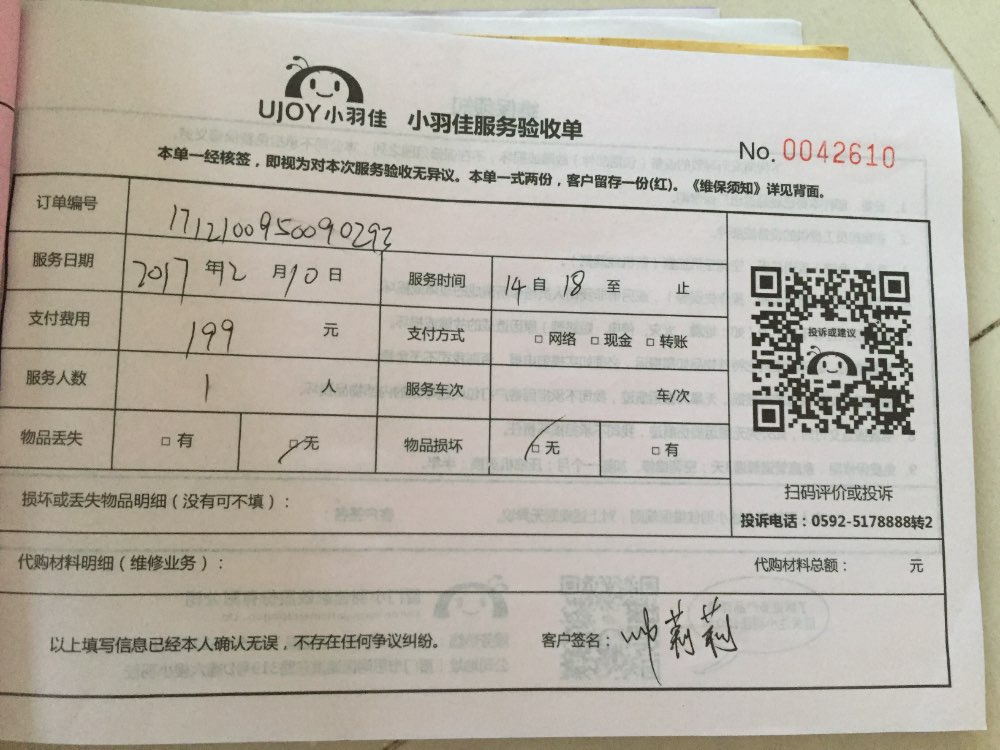 UJOY小羽佳 小羽佳服务验收单
No. 0042610
本单一经核签，即视为对本次服务验收无异议。本单一式两份，客户留存一份(红)。《维保须知》详见背面。
订单编号 1712100950090293
服务日期 2017 年 12 月 10 日 服务时间 14 自 18 至 止
支付费用 199 元 支付方式 □ 网络 □ 现金 □ 转账
投诉或建议
服务人数 1 人 服务车次 车/次
物品丢失 □ 有 □ 无 物品损坏 □ 无 □ 有
扫码评价或投诉
损坏或丢失物品明细（没有可不填）：
投诉电话：0592-5178888转2
代购材料明细（维修业务）： 代购材料总额： 元
以上填写信息已经本人确认无误，不存在任何争议纠纷。 客户签名： 莉莉